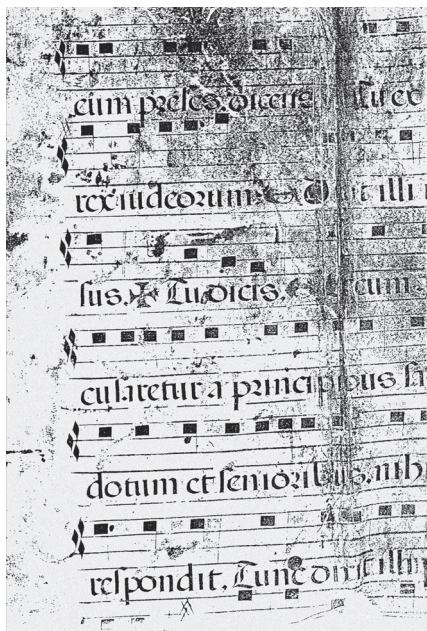 eum preses dicens Tu es
rex iudeorum Dixit illi
sus. ✠ Tu dicis. Et cum
cusaretur a principibus sa
dotum et senioribus. nih
respondit. Tunc dixit illi